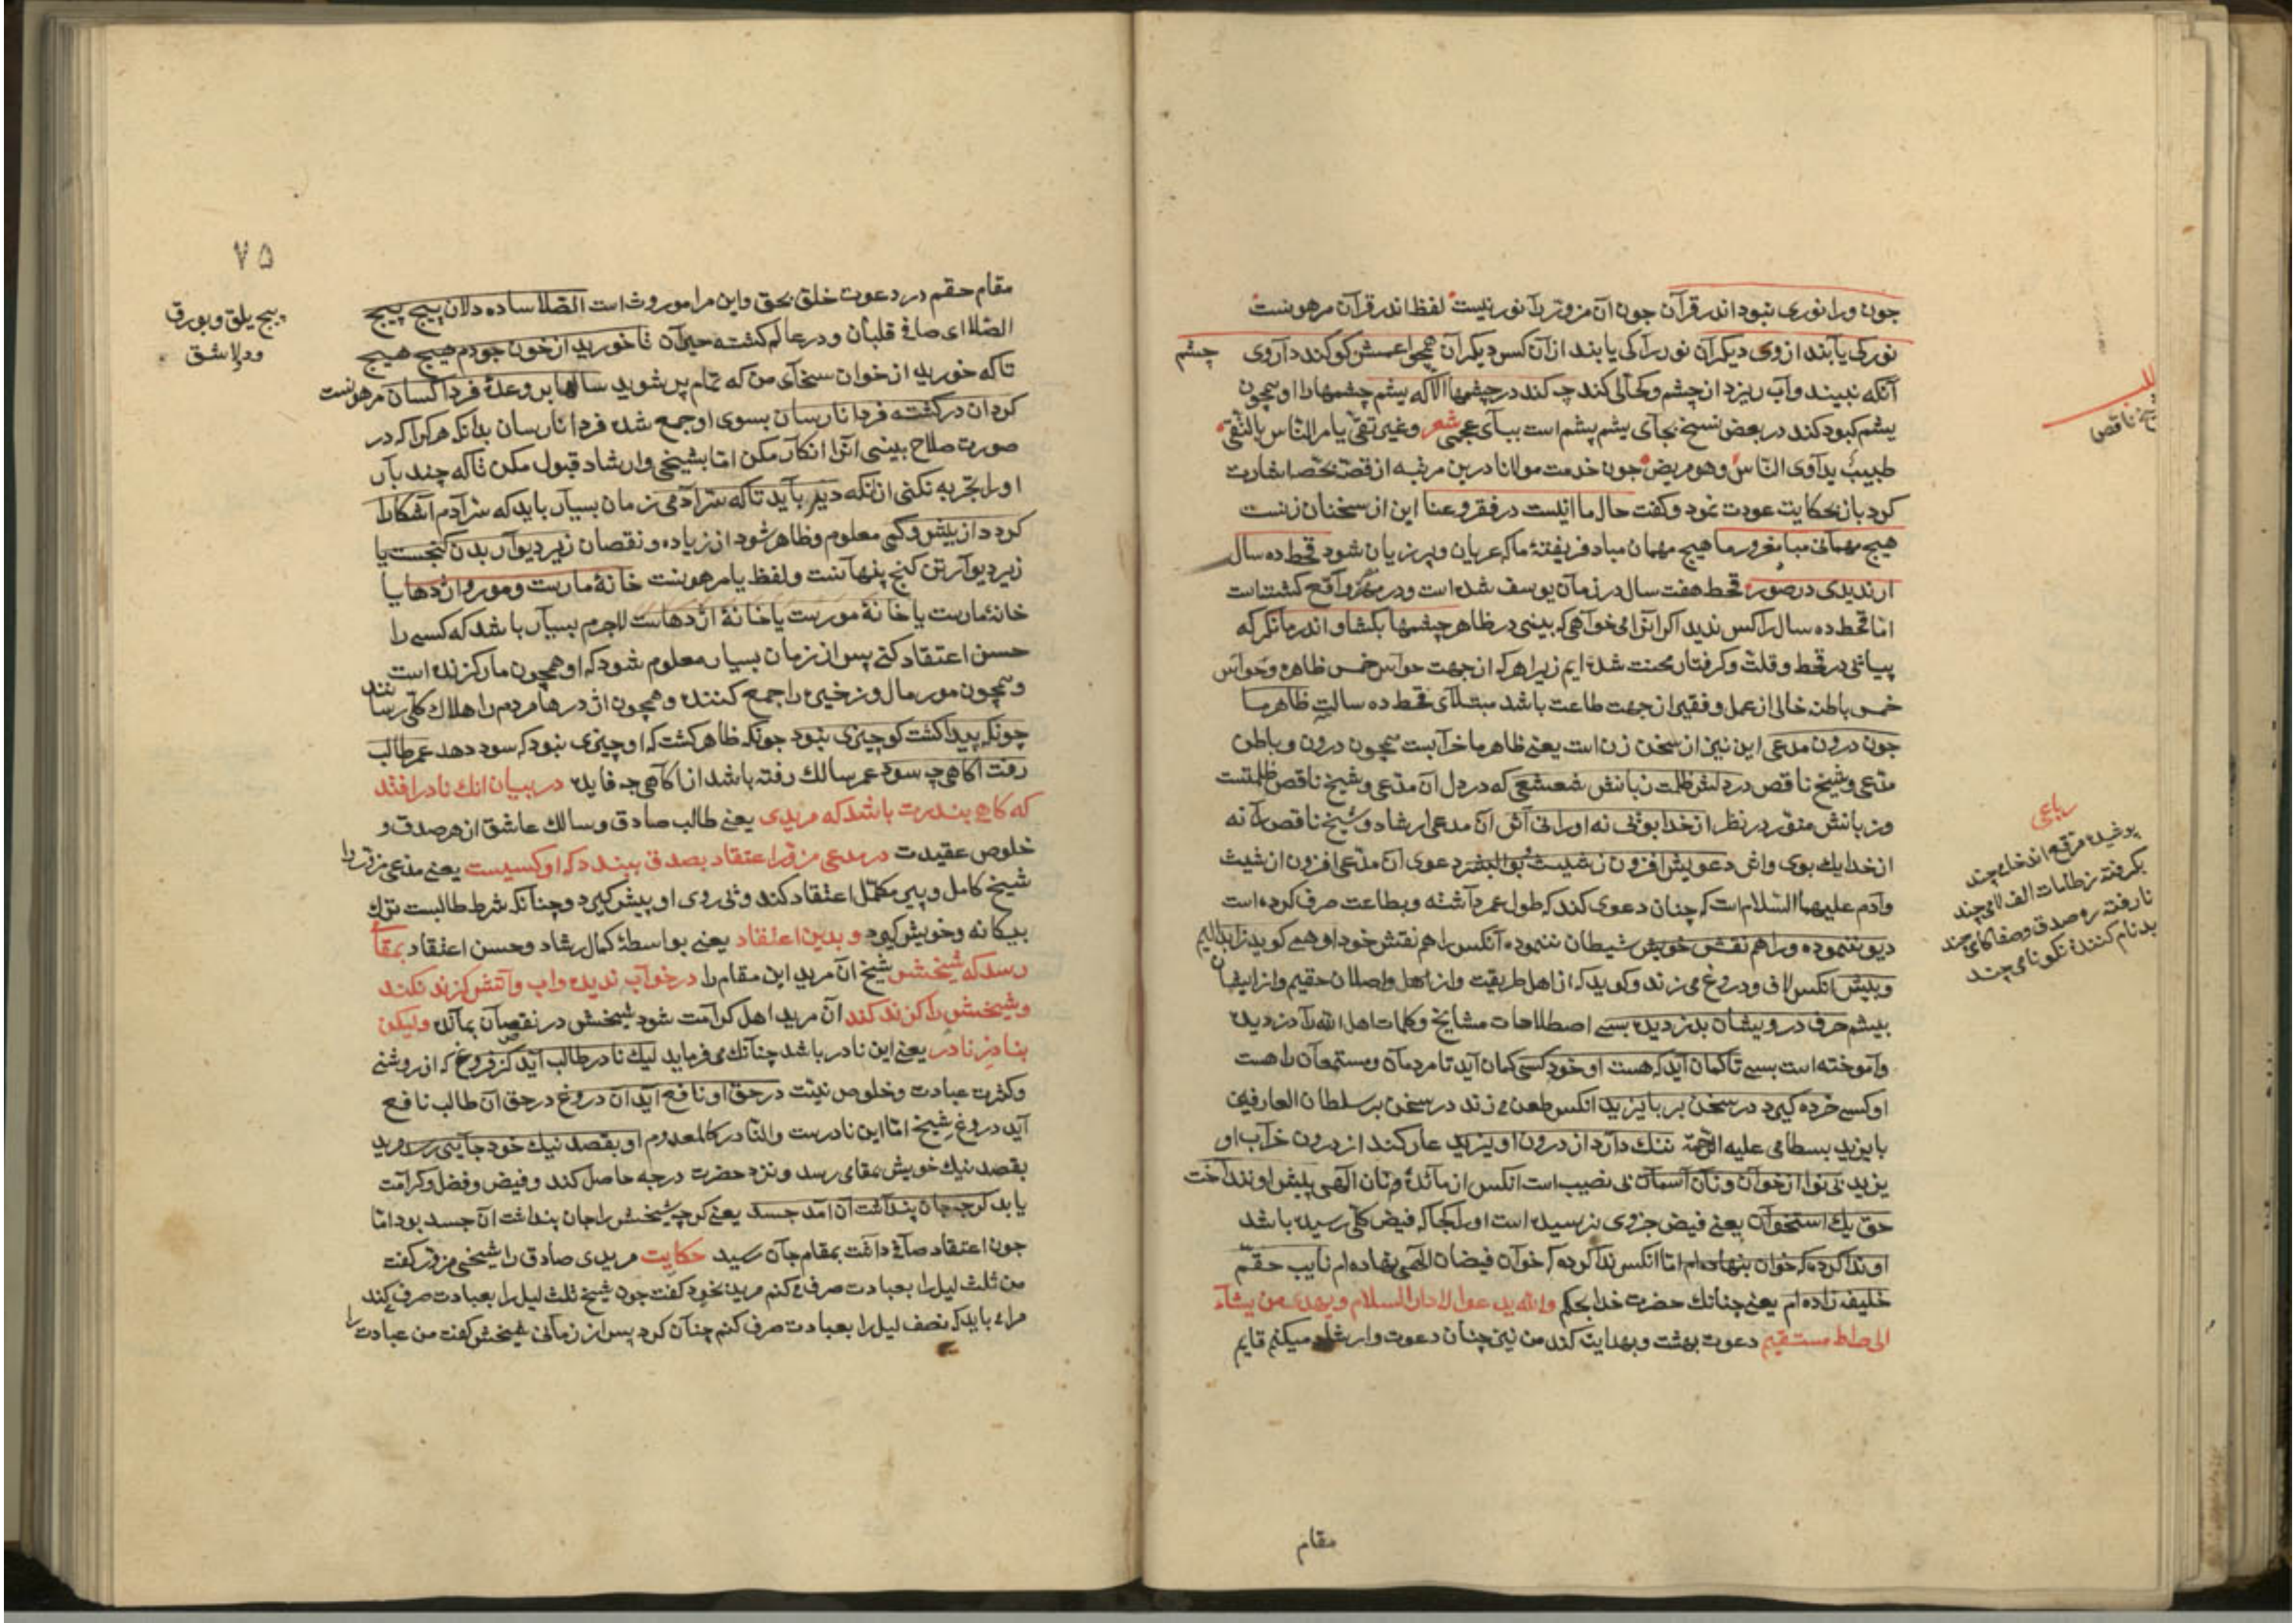 چون ورا نوری نبود اندر قرآن چون آن مزور را نور نیست لفظ اندر قرآن مرهونست
نور کی یابند از وی دیکران نور را کی یابند از آن کس دیکران همچو اعمش کو کند داروی چشم
آنکه نبیند و آب ریزد از چشم و کحالی کند چه کند در چشمها الا که یشم چشمها را او همچون
یشم کبود کند در بعض نسخ بجای یشم پشم است ببای عجمی شعر وغیر تقی یامر الناس بالتقی
طبیب یداوی الناس وهو مریض چون خدمت مولانا درین مرتبه از قصه بحصه اشارت
کرد باز بحکایت عودت نمود و کفت حال ما اینست در فقر و عنا این از سخنان زنست
هیچ مهمانی مبا مغرور ما هیچ مهمان مباد فریفتهٔ ما که عریان و پر زیان شود قحط ده سال
ار ندیدی در صور قحط هفت سال در زمان یوسف شده است و در مصر واقع کشته است
اما قحط ده سال را کس ندید اکر انرا می خواهی که بینی در ظاهر چشمها بکشا و اندر ما نکر که
بیانی در قحط و قلت و کرفتار محنت شده ایم زیرا هر که از جهت حواس خمس ظاهره و حواس
خمس باطنه خالی از عمل و فقیر از جهت طاعت باشد مبتلای قحط ده سالت ظاهر ما
چون درون مدعی این نیز از سخن زن است یعنی ظاهر ما خرابست همچون درون و باطن
مدعی و شیخ ناقص در دلش ظلمت زبانش شعشعی که در دل آن مدعی و شیخ ناقص ظلمتست
و زبانش منور در نظر از خدا بوئی نه او را نی اثر آن مدعی ارشاد و شیخ ناقص را نه
از خدا یک بوی و اثر دعویش افزون ز شیث و بوالبشر دعوی آن مدعی افزون از شیث
و آدم علیهما السلام است که چنان دعوی کند که طول عمر داشته و بطاعت صرف کرده است
دیو ننموده ورا هم نقش خویش شیطان ننموده آنکس را هم نقش خود او همی کوید ز ابدالیم
و بیش آنکس لاف و دروغ می زند و کوید که از اهل طریقت و از اهل واصلان حقیم و از ایشان
بیشم حرف درویشان بدزدیده بسی اصطلاحات مشایخ و کلمات اهل الله را دزدیده
و آموخته است بسی تا کمان آید که هست او خود کسی کمان آید تا مردمان و مستمعان را هست
او کسی خرده کیرد در سخن بر بایزید انکس طعن می زند در سخن بر سلطان العارفین
بایزید بسطامی علیه الرحمة ننک دارد از درون او یزید عار کند از درون خراب او
یزید بی نوا از خوان و نان آسمان بی نصیب است انکس از مائده و نان الهی پیش او نندا خت
حق یک استخوان یعنی فیض جزوی نرسیده است او را کجا که فیض کلی رسیده باشد
او ندا کرده که خوان بنهاده ام اما انکس ندا کرده که خوان فیضان الهی نهاده ام نایب حقم
خلیفه زاده ام یعنی چنانک حضرت خدا بحکم والله یدعوا الی دار السلام ویهدی من یشاء
الی صراط مستقیم دعوت بهشت و بهدایت کند من نیز چنان دعوت و ارشاد میکنم قایم
مقام
شیخ ناقص
رباعی
پوشیده مرقع اند خامی چند
بکرفته ز طامات الف لامی چند
نا رفته ره صدق و صفا کامی چند
بدنام کنندهٔ نکو نامی چند
۷۵
مقام حقم در دعوت خلق بحق و این مرا موروث است الصلا ساده دلان پیچ پیچ
الصلا ای صافی قلبان و در عالم کشته حیران تا خورید از خون جودم هیچ هیچ
تا که خورید از خوان سخای من که تمام پر شوید سالها بر وعدهٔ فردا کسان مرهونست
کرد آن در کشته فردا نارسان بسوی او جمع شده فردا نارسان بدانکه هر کرا که در
صورت صلاح بینی انرا انکار مکن اما بشیخی و ارشاد قبول مکن تا که چند بار
او را تجربه نکنی از انکه دیر باید تا که سر آدمی زمان بسیار باید که سر آدم آشکارا
کردد از بیش و کمی معلوم و ظاهر شود از زیاده و نقصان زیر دیوار بدن کنجست یا
زیر دیوار تن کنج پنهانست و لفظ یا مرهونست خانهٔ مارست و مور و اژدها یا
خانهٔ مارست یا خانهٔ مورست یا خانهٔ اژدهاست لاجرم بسیار باشد که کسی را
حسن اعتقاد کنی پس از زمان بسیار معلوم شود که او همچون مار کزنده است
و همچون مور مال و زخیره را جمع کننده و همچون اژدرها مردم را هلاک کلی رسانند
چونکه پیدا کشت کو چیزی نبود چونکه ظاهر کشت که او چیزی نبود که سود دهد عمر طالب
رفت اکاهی چه سود عمر سالک رفته باشد از اکاهی چه فایده در بیان انک نادر افتد
که کاهی بندرت باشد که مریدی یعنی طالب صادق و سالک عاشق از هر صدق و
خلوص عقیدت در مدعی مزور اعتقاد بصدق ببندد که او کسیست یعنی مدعی مزور را
شیخ کامل و پیر مکمل اعتقاد کند و نی روی او پیش کیرد و چنانکه شرط طالبست ترک
بیکانه و خویش کیرد و بدین اعتقاد یعنی بواسطهٔ کمال ارشاد و حسن اعتقاد بمقا
رسد که شیخش شیخ آن مرید این مقام را در خواب ندیده و اب و آتش کزند نکند
و شیخش را کزند کند آن مرید اهل کرامت شود شیخش در نقصان بمانده ولیکن
بنادر نادر یعنی این نادر باشد چنانک می فرماید لیک نادر طالب آید کز فروغ که از روشنی
و کثرت عبادت و خلوص نیت در حق او نافع آید آن دروغ در حق آن طالب نافع
آید دروغ شیخ اما این نادرست والنادر کالمعدوم او بقصد نیک خود جایی رسد مرید
بقصد نیک خویش بمقامی رسد و نزد حضرت درجه حاصل کند و فیض و فضل و کرامت
یابد کرچه جان پنداشت آن آمد جسد یعنی کرچه شیخش را جان پنداشت آن جسد بود اما
چون اعتقاد صافی داشت بمقام جان رسید حکایت مریدی صادق را شیخی مزور کفت
من ثلث لیل را بعبادت صرف می کنم مرید بخود کفت چون شیخ ثلث لیل را بعبادت صرف می کند
مرا می باید که نصف لیل را بعبادت صرف کنم چنان کرد پس از زمانی شیخش کفت من عبادت را